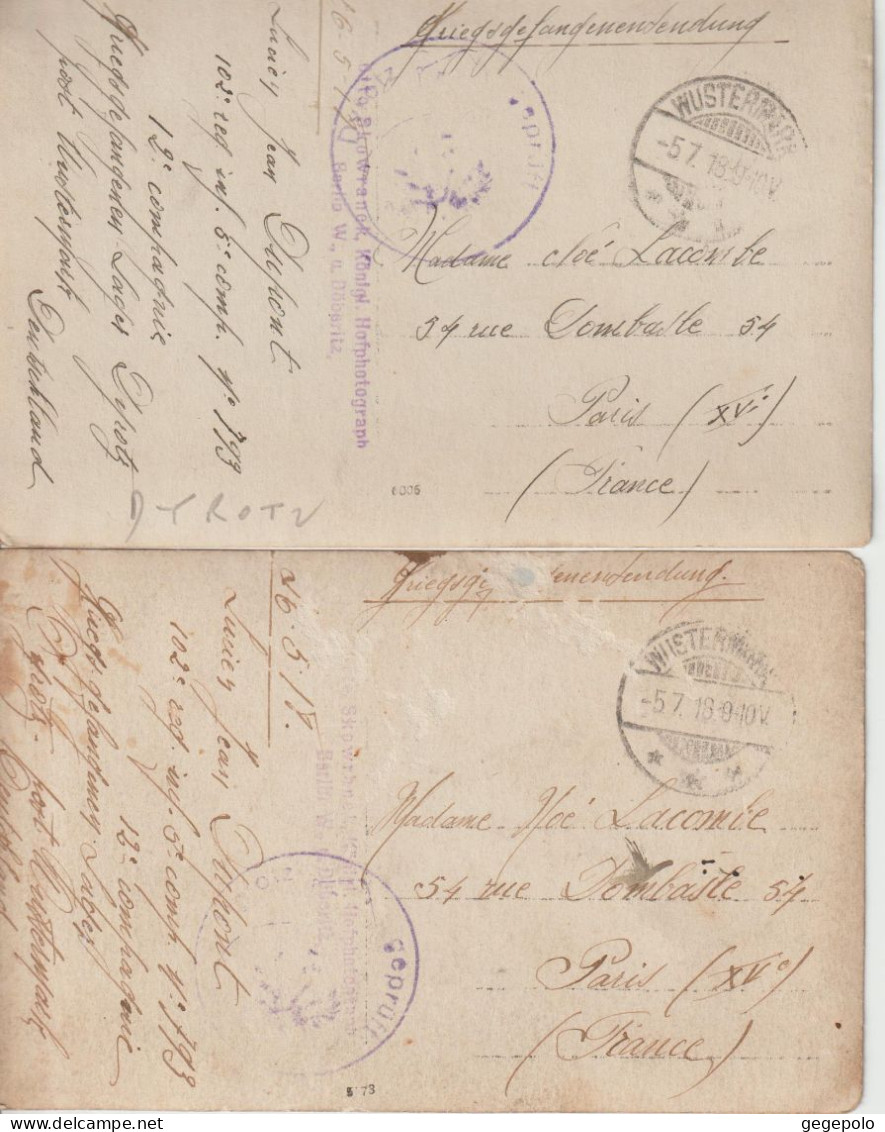 Kriegsgefangenensendung
WUSTERMARK
-5.7.18.9-10V.
Madame Noé Lacombe
54 rue Dombasle 54
Paris (XVe)
(France)
16-5-
Lucien Jean Dupont
102e reg inf. 5e comp. No 193
12e compagnie
Kriegsgefangenen-Lager Dyrotz
post Wustermark
Deutschland
geprüft
Otto Skowranek, Königl. Hofphotograph
Berlin W., u. Döberitz.
6006
DYROTZ
Kriegsg enensendung.
WUSTERMARK
-5.7.18.9-10V.
Madame Noé Lacombe
54 rue Dombasle 54
Paris (XVe)
(France)
16.5.18.
Lucien Jean Dupont
102e reg. inf. 5e comp. No 193
12e compagnie
Kriegsgefangenen-Lager
Dyrotz - post Wustermark
Deutschland
geprüft
Skowranek, Königl. Hofphotograph
Berlin W., u. Döberitz.
5 73
gegepolo